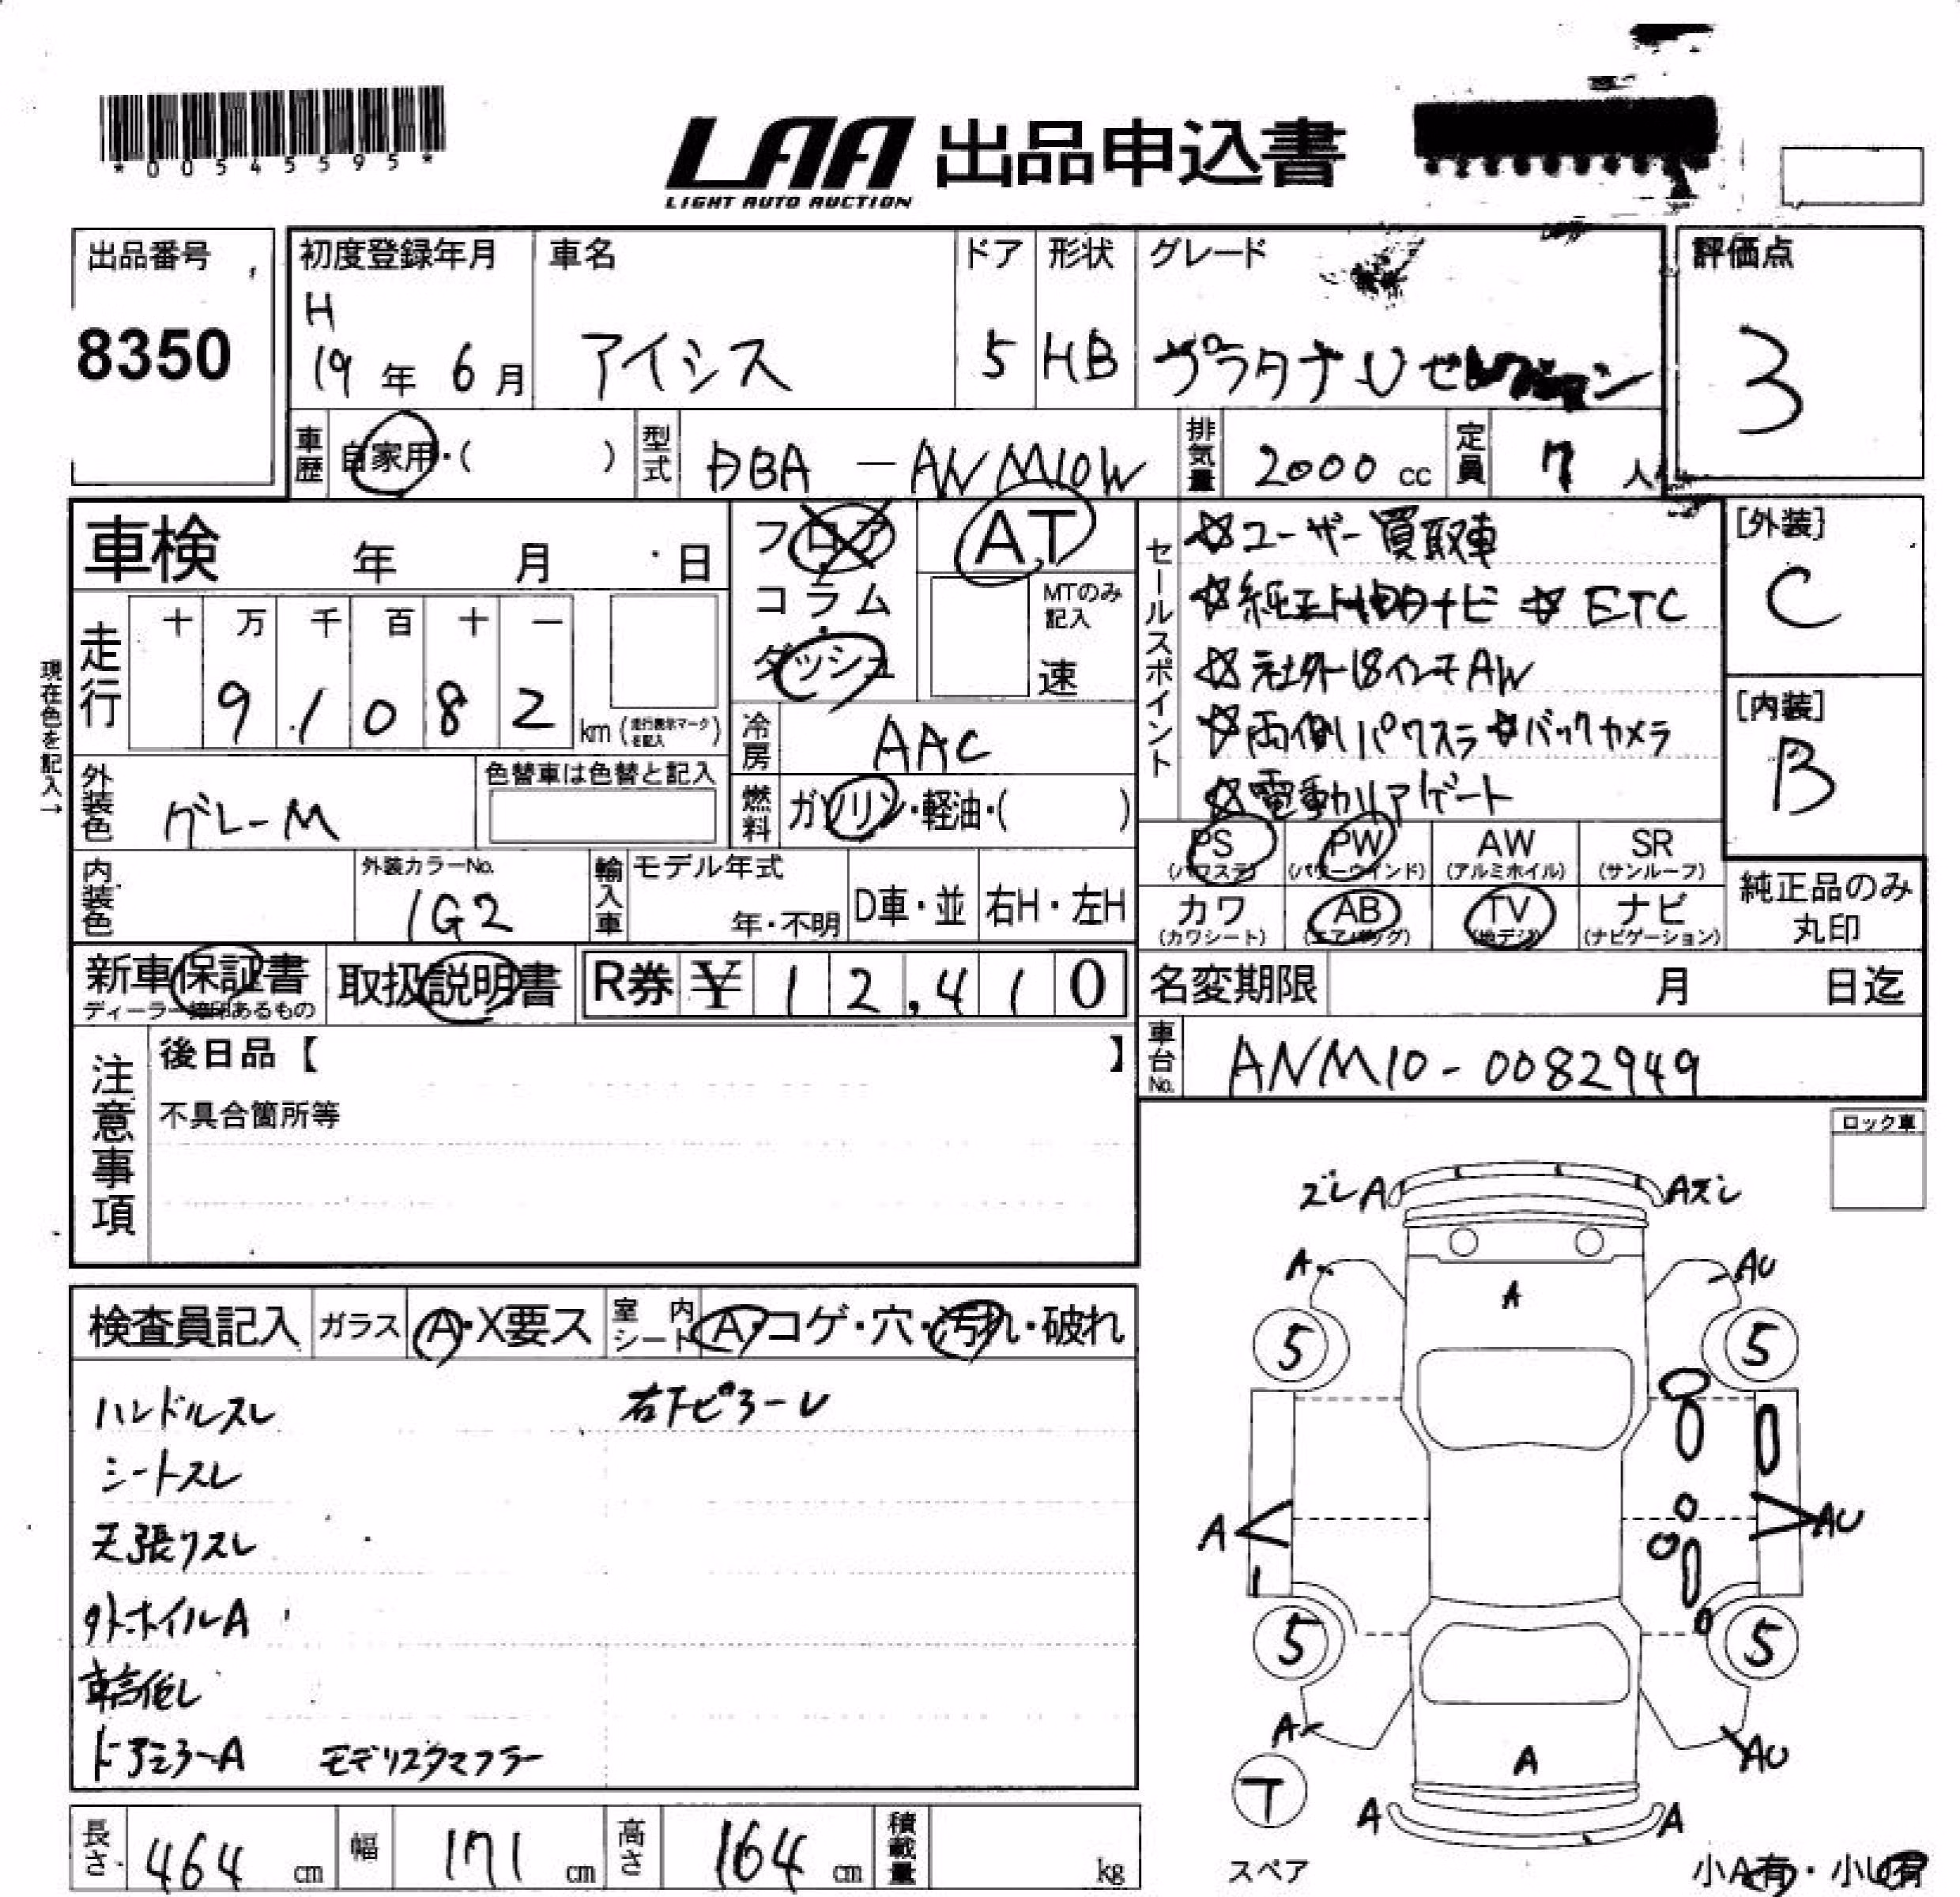 *00545595*
LAA 出品申込書
LIGHT AUTO AUCTION
出品番号
8350
初度登録年月
H
19 年 6 月
車名
アイシス
ドア
5
形状
HB
グレード
プラタナ Uセレクション
評価点
3
車歴
自家用・( )
型式
DBA - ANM10W
排気量
2000 cc
定員
7 人
車検 年 月 日
フロア
コラム
ダッシュ
AT
MTのみ
記入
速
セールスポイント
☆ユーザー買取車
☆純正HDDナビ ☆ETC
☆社外18インチAW
☆両側パワスラ ☆バックカメラ
☆電動リアゲート
[外装]
C
[内装]
B
現在色を記入→
走行
十 万 千 百 十 一
9 1 0 8 2
km (走行表示マークを記入)
冷房
AAC
燃料
ガソリン・軽油・( )
外装色
グレーM
色替車は色替と記入
内装色
外装カラーNo.
1G2
輸入車
モデル年式
年・不明
D車・並
右H・左H
PS
(パワステ)
PW
(パワーウインド)
AW
(アルミホイル)
SR
(サンルーフ)
カワ
(カワシート)
AB
(エアバッグ)
TV
(地デジ)
ナビ
(ナビゲーション)
純正品のみ
丸印
新車保証書
ディーラー捺印あるもの
取扱説明書
R券 ¥ 1 2,4 1 0
名変期限 月 日迄
車台No.
ANM10-0082949
注意事項
後日品【 】
不具合箇所等
ロック車
検査員記入
ガラス
A・X要ス
室内
シート
A・コゲ・穴・汚れ・破れ
ハンドルスレ
右下ピラーU
シートスレ
天張リスレ
外ホイルA
車高低し
ドアミラーA
モデリスタマフラー
ズレA
Aズレ
A
AU
A
5
5
A
AU
5
5
A
AU
A
T
スペア
A
A
小A有・小U有
長さ
464 cm
幅
171 cm
高さ
164 cm
積載量
kg